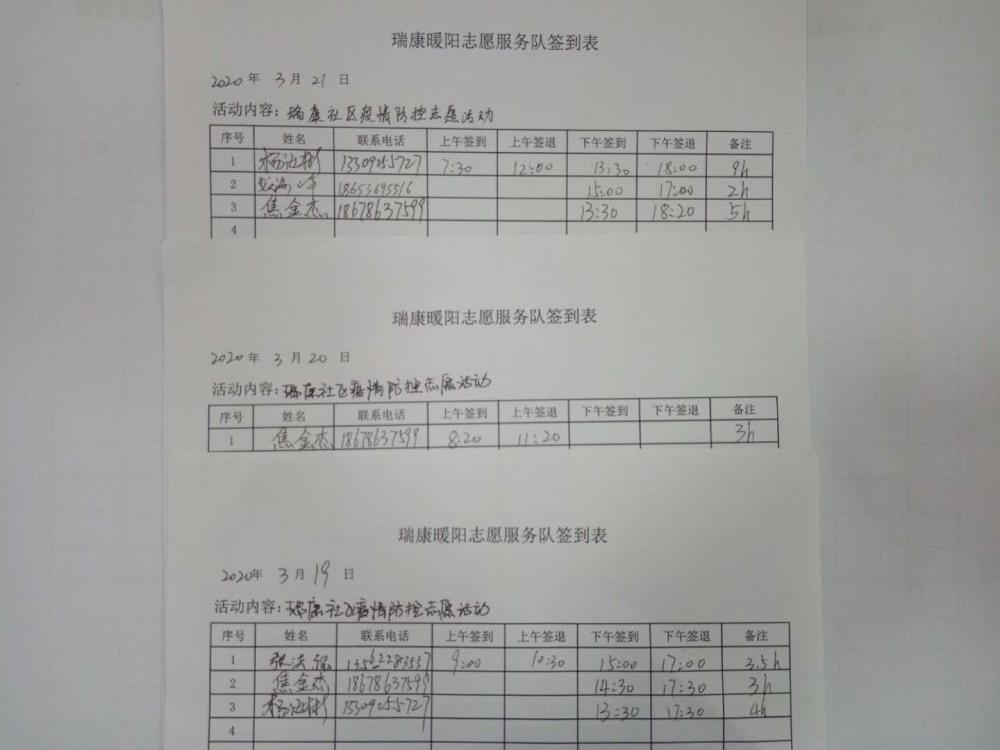 瑞康暖阳志愿服务队签到表
2020年 3月 21 日
活动内容：瑞康社区疫情防控志愿活动
序号 姓名 联系电话 上午签到 上午签退 下午签到 下午签退 备注
1 杨 彬 15309255727 7:30 12:00 13:30 18:00 9h
2 18653695516 15:00 17:00 2h
3 焦金杰 18678637599 13:30 18:20 5h
4
瑞康暖阳志愿服务队签到表
2020年 3月 20 日
活动内容：瑞康社区疫情防控志愿活动
序号 姓名 联系电话 上午签到 上午签退 下午签到 下午签退 备注
1 焦金杰 18678637599 8:20 11:20 3h
瑞康暖阳志愿服务队签到表
2020年 3月 19 日
活动内容：瑞康社区疫情防控志愿活动
序号 姓名 联系电话 上午签到 上午签退 下午签到 下午签退 备注
1 张洪强 13562283537 9:00 10:30 15:00 17:00 3.5h
2 焦金杰 18678637599 14:30 17:30 3h
3 杨 彬 15309255727 13:30 17:30 4h
4